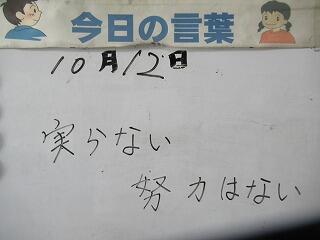 今日の言葉
10月12日
実らない
努力はない